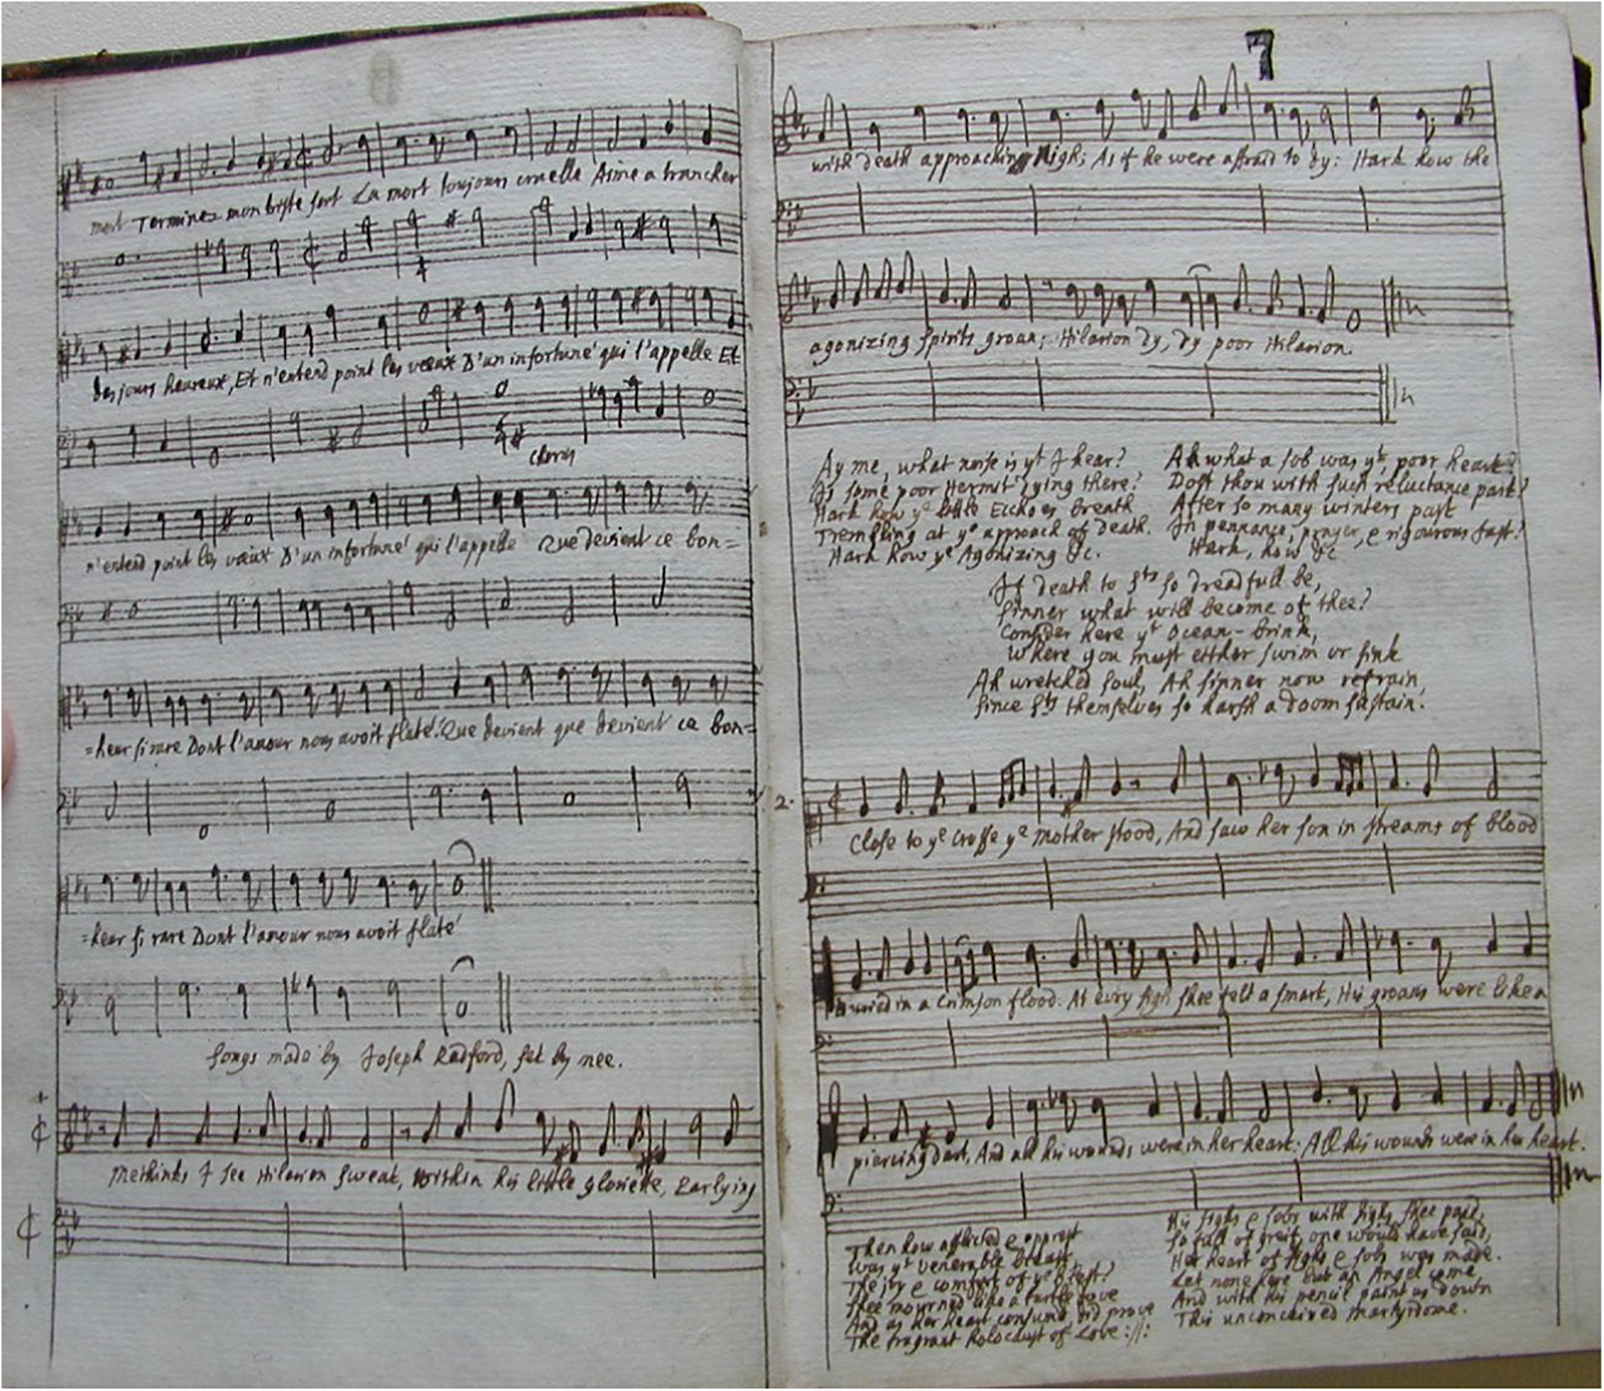 mort Terminez mon triste sort La mort toujours cruelle Aime a trancher
des jours heureux, Et n'entend point les vœux D'un infortuné qui l'appelle Et
Chorus
n'entend point les vœux D'un infortuné qui l'appelle Que devient ce bon=
=heur si rare Dont l'amour nous avoit flaté? Que devient que devient ce bon=
=heur si rare Dont l'amour nous avoit flaté
Songs made by Joseph Radford, set by mee.
Methinks I see Hilarion sweat, Within his little gloriette, Earlying
7
with death approaching Nigh; As if he were affraid to dy: Hark how the
agonizing spirits groan; Hilarion dy, dy poor Hilarion.
Ay me, what noise is yt I hear?
Is some poor Hermit dying there?
Hark how ye little Ecchoes breath
Trembling at ye approach of death.
Hark how ye Agonizing &c.
Ah what a sob was yt, poor heart?
Dost thou with such reluctance part?
After so many winters past
In pennance, prayer, e rigourous fast?
Hark, how &c
If death to Sts so dreadfull be,
sinner what will become of thee?
Consider here yt Ocean-brink,
Where you must either swim or sink
Ah wretched soul, Ah sinner now refrain,
Since Sts themselves so harsh a doom sustain.
2.
Close to ye Crosse ye mother stood, And saw her son in streams of blood
Buried in a Crimson flood. At evry sigh shee felt a smart, His groans were like a
piercing dart, And all his wounds were in her heart: All his wounds were in her heart.
Then how afflicted e opprest
Was yt venerable breast
The joy e comfort of ye blest?
Shee mourned like a turtle dove
And as her heart consum'd, did prove
The fragrant Holocaust of Love :||:
His sighs e sobs with sighs shee paid,
So full of greif, one would have said,
Her heart of sighs e sobs was made.
Let none here but an Angel come
And with his pencil paint us down
This unconceived Martyrdome.